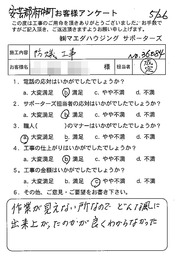 安芸郡府中町 お客様アンケート 5/26
この度は工事のご用命を頂きありがとうございました。お手数で
すがご記入頂き、ご返送頂きますようお願い申し上げます。
㈱マエダハウジング サポーターズ
施工内容 防蟻工事 No,36084
お名前 様 担当者
1．電話の対応はいかがでしたでしょうか？
a.大変満足 b.満足 c.やや不満 d.不満
2．サポーターズ担当者の対応はいかがでしたでしょうか？
a.大変満足 b.満足 c.やや不満 d.不満
3．職人（ ）のマナーはいかがでしたでしょうか？
a.大変満足 b.満足 c.やや不満 d.不満
4．工事の出来上がりはいかがでしたでしょうか？
a.大変満足 b.満足 c.やや不満 d.不満
5．工事の金額はいかがでしたでしょうか？
a.大変満足 b.満足 c.やや不満 d.不満
6．その他、ご意見・ご要望をお書き下さい。
作業が見えない所なので どんな風に
出来上がったのかが良くわからなかった